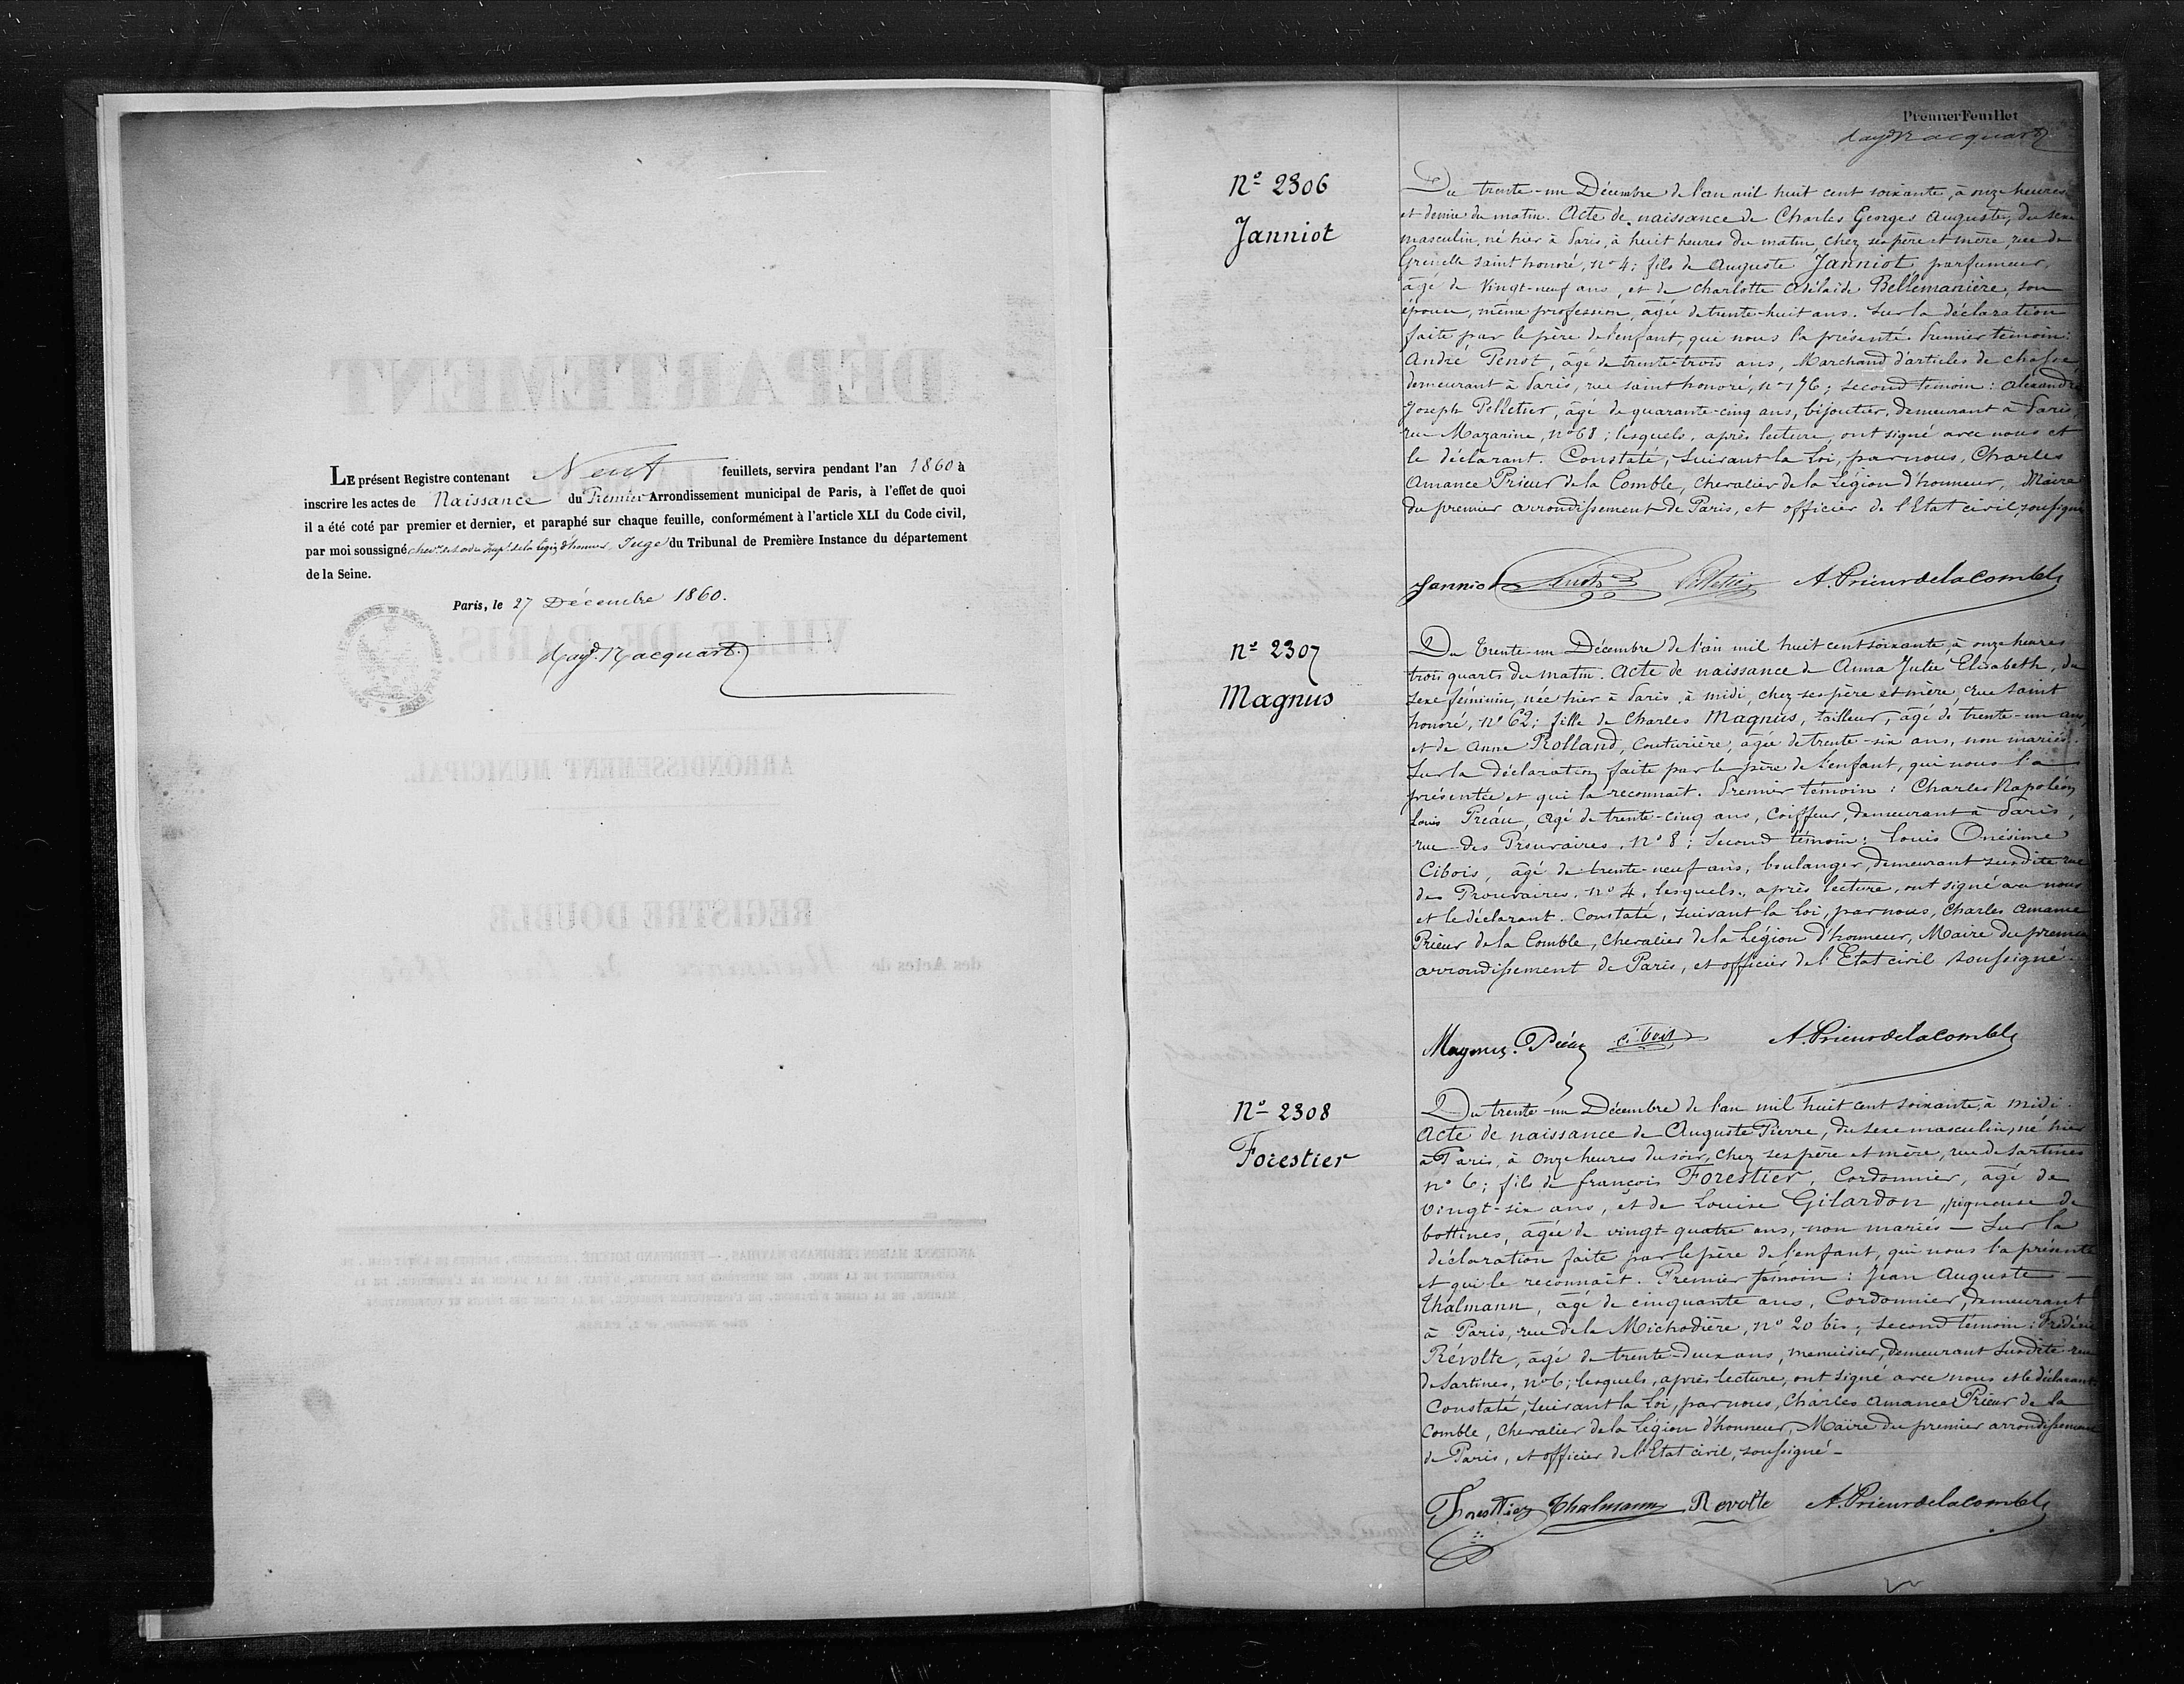 LE présent Registre contenant Neuf feuillets, servira pendant l'an 1860 à
inscrire les actes de Naissance du Premier Arrondissement municipal de Paris, à l'effet de quoi
il a été coté par premier et dernier, et paraphé sur chaque feuille, conformément à l'article XLI du Code civil,
par moi soussigné chevr de l'ordre Impl de la Légion d'honneur Juge du Tribunal de Première Instance du département
de la Seine.
Paris, le 27 Décembre 1860.
Premier Feuillet
No 2306
Janniot
Du trente-un Décembre de l'an mil huit cent soixante, à onze heures
et demie du matin. Acte de naissance de Charles Georges Auguste, du sexe
masculin, né hier à Paris, à huit heures du matin, chez ses père et mère, rue de
Grenelle saint honoré, no 4; fils de Auguste Janniot parfumeur,
âgé de vingt-neuf ans, et de Charlotte Adélaïde Bellemanière, son
épouse, même profession, âgée de trente-huit ans. Sur la déclaration
faite par le père de l'enfant, que nous l'a présenté. Premier témoin:
André Penot, âgé de trente-trois ans, Marchand d'articles de chasse
demeurant à Paris, rue saint honoré, no 176; second témoin: Alexandre
Joseph Pelletier, âgé de quarante-cinq ans, bijoutier, demeurant à Paris,
rue Mazarine, no 68; lesquels, après lecture, ont signé avec nous et
le déclarant. Constaté, suivant la loi, par nous, Charles
Amance Prieur de la Comble, chevalier de la Légion d'honneur, Maire
du premier arrondissement de Paris, et officier de l'Etat civil, soussigné
Janniot Penot Pelletier A. Prieur de la Comble
No 2307
Magnus
Du trente-un Décembre de l'an mil huit cent soixante, à onze heures
trois quarts du matin. Acte de naissance de Anna Julie Elisabeth, du
sexe féminin, née hier à Paris, à midi, chez ses père et mère, rue saint
honoré, no 62; fille de Charles Magnus, tailleur, âgé de trente-un ans,
et de Anne Rolland, couturière, âgée de trente-six ans, non mariés.
Sur la déclaration faite par le père de l'enfant, qui nous l'a
présentée et qui la reconnait. Premier témoin: Charles Napoléon
Louis Préau, âgé de trente-cinq ans, coiffeur, demeurant à Paris,
rue des Prouvaires, no 8; second témoin: Louis Onésime
Cibois, âgé de trente-neuf ans, boulanger, demeurant susdite rue
des Prouvaires, no 4, lesquels, après lecture, ont signé avec nous
et le déclarant. Constaté, suivant la loi, par nous, Charles Amance
Prieur de la Comble, chevalier de la Légion d'honneur, Maire du premier
arrondissement de Paris, et officier de l'Etat civil soussigné.
Magnus. Préau Cibois A. Prieur de la Comble
No 2308
Forestier
Du trente-un Décembre de l'an mil huit cent soixante, à midi.
Acte de naissance de Auguste Pierre, du sexe masculin, né hier
à Paris, à onze heures du soir, chez ses père et mère, rue de Sartines
no 6; fils de françois Forestier, Cordonnier, âgé de
vingt-six ans, et de Louise Gilardon, piqueuse de
bottines, âgée de vingt quatre ans, non mariés - Sur la
déclaration faite par le père de l'enfant, qui nous l'a présenté
et qui le reconnait. Premier témoin: Jean Auguste -
Thalmann, âgé de cinquante ans, Cordonnier, demeurant
à Paris, rue de la Michodière, no 20 bis; second témoin: Frédéric
Révolte, âgé de trente-deux ans, menuisier, demeurant susdite rue
de Sartines, no 6; lesquels, après lecture, ont signé avec nous et le déclarant
Constaté, suivant la loi, par nous, Charles Amance Prieur de la
Comble, chevalier de la Légion d'honneur, Maire du premier arrondissement
de Paris, et officier de l'Etat civil, soussigné -
Foresttier Thalmann Revolte A. Prieur de la Comble